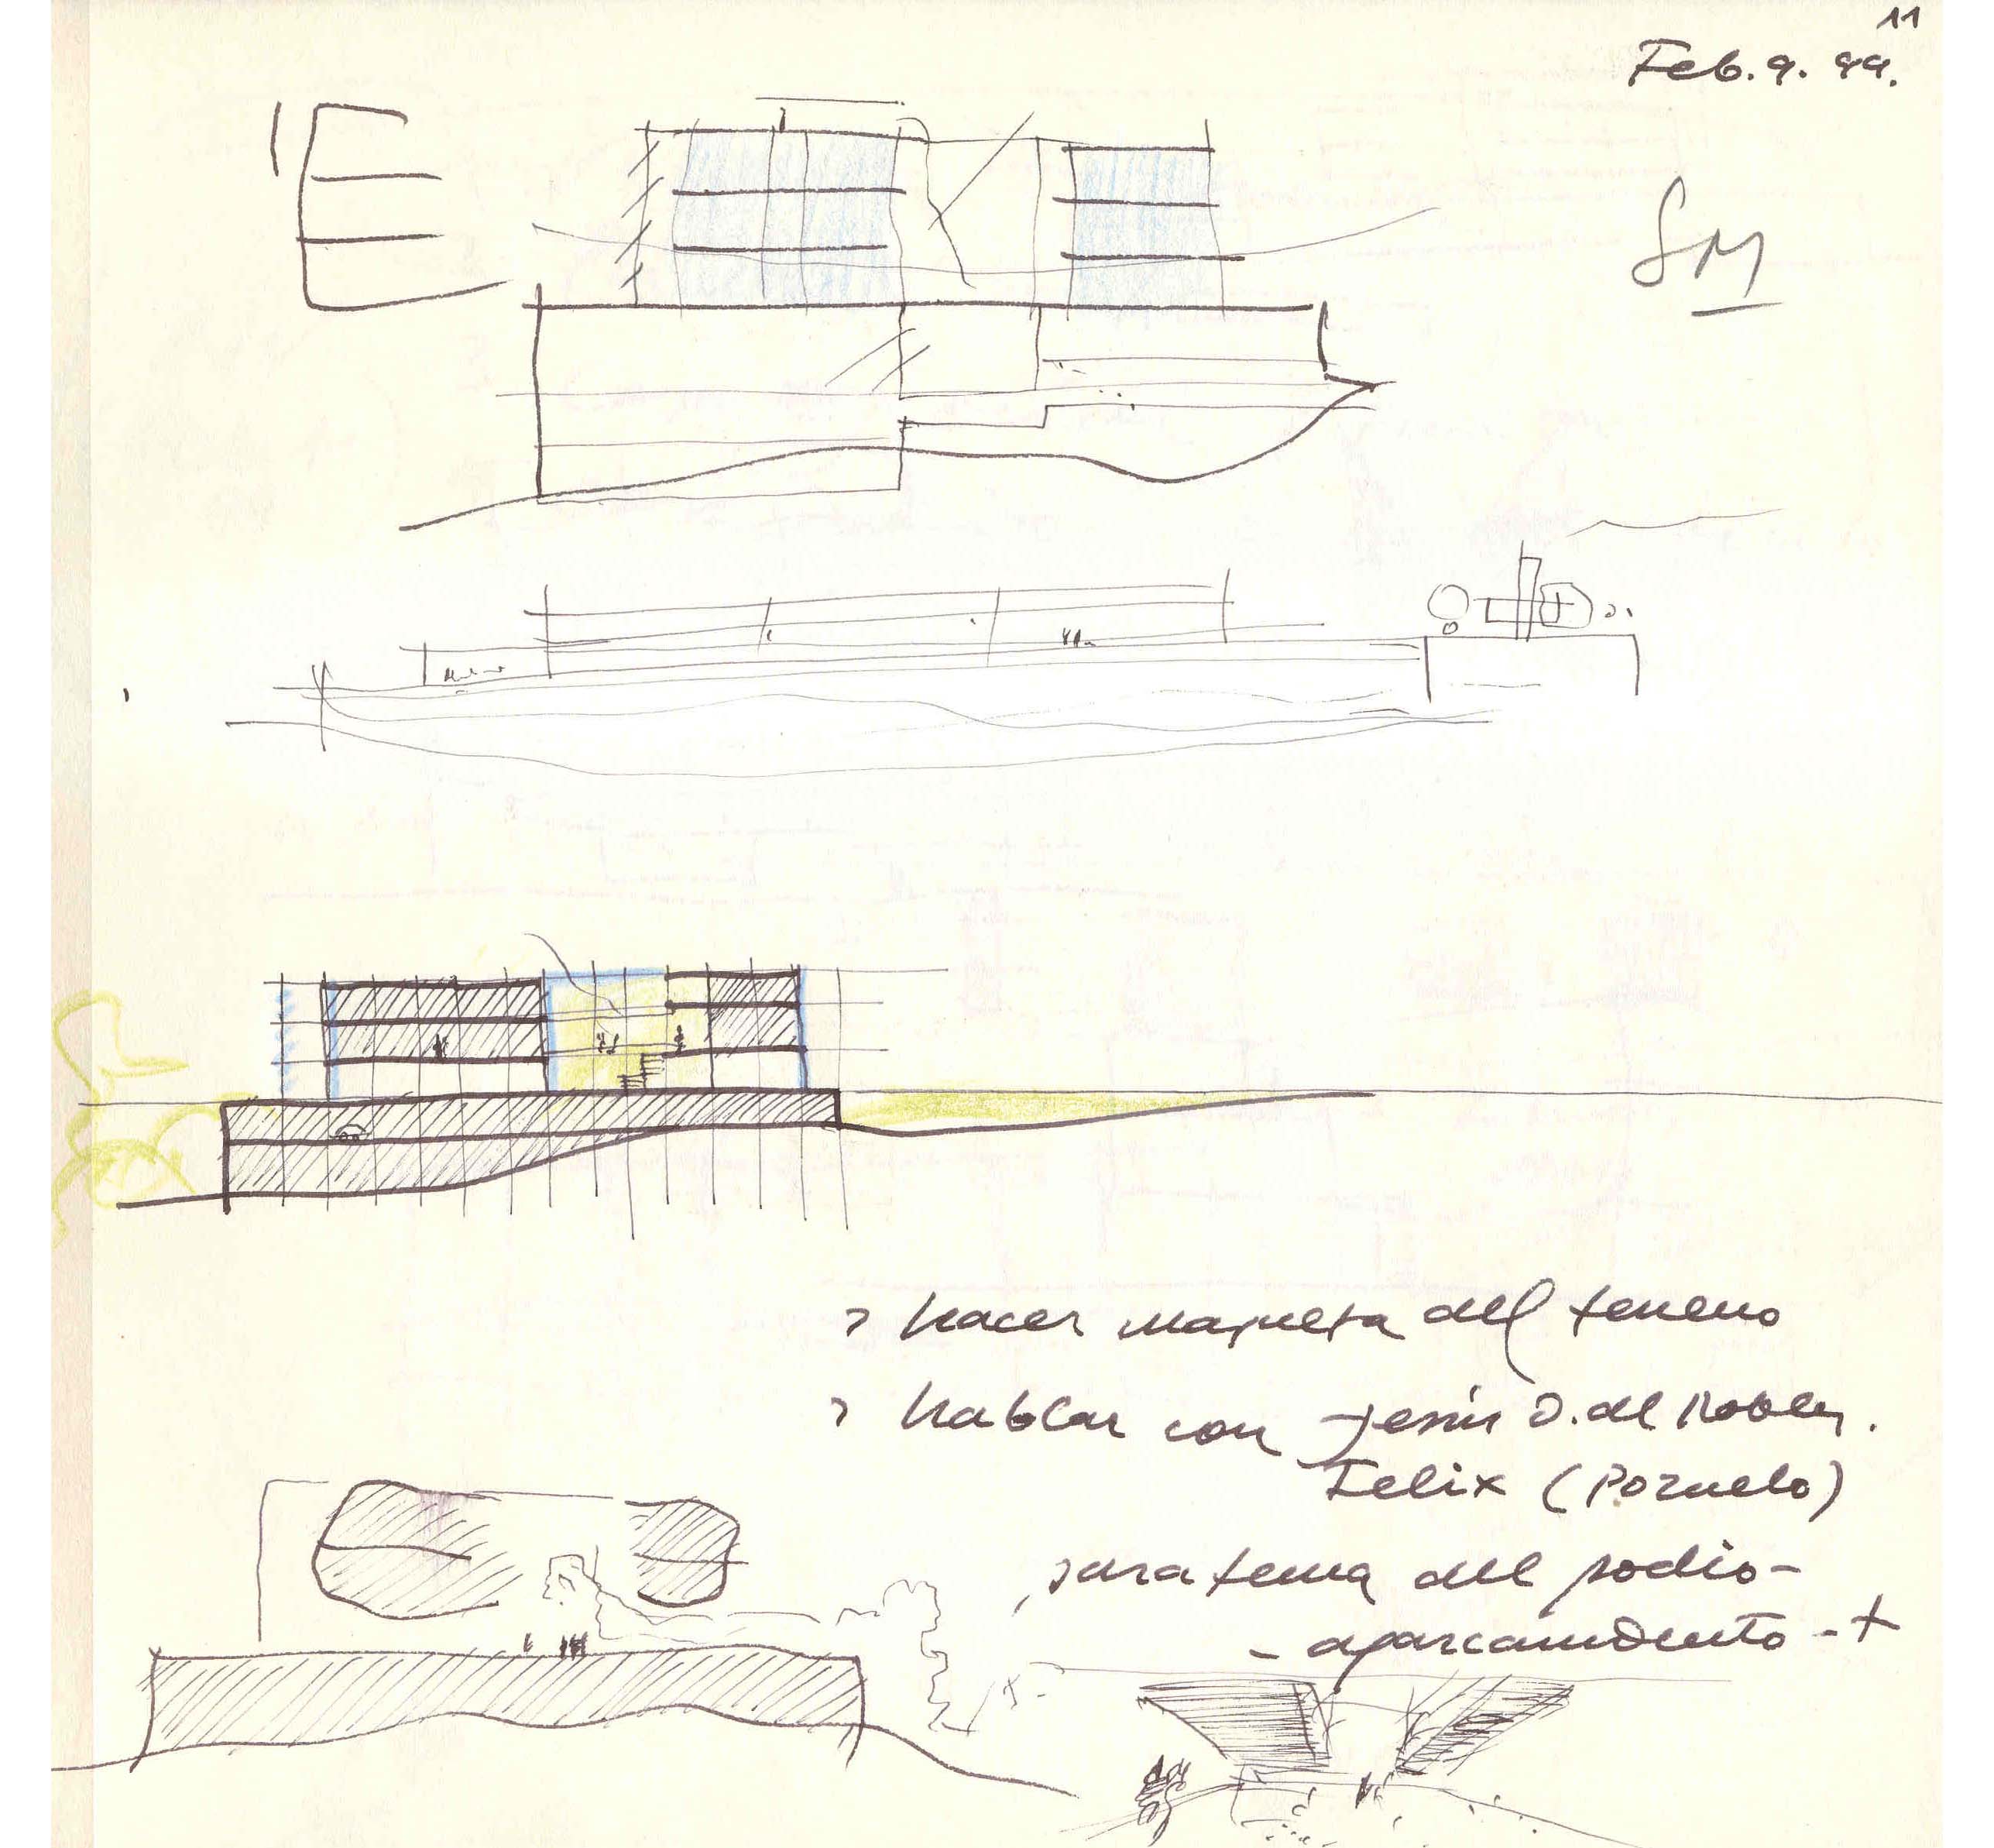 11
Feb. 9. 99.
SM
> hacer maqueta del terreno
> hablar con Jesús D. del
Felix (Pozuelo)
para tema del podio-
- aparcamiento - +